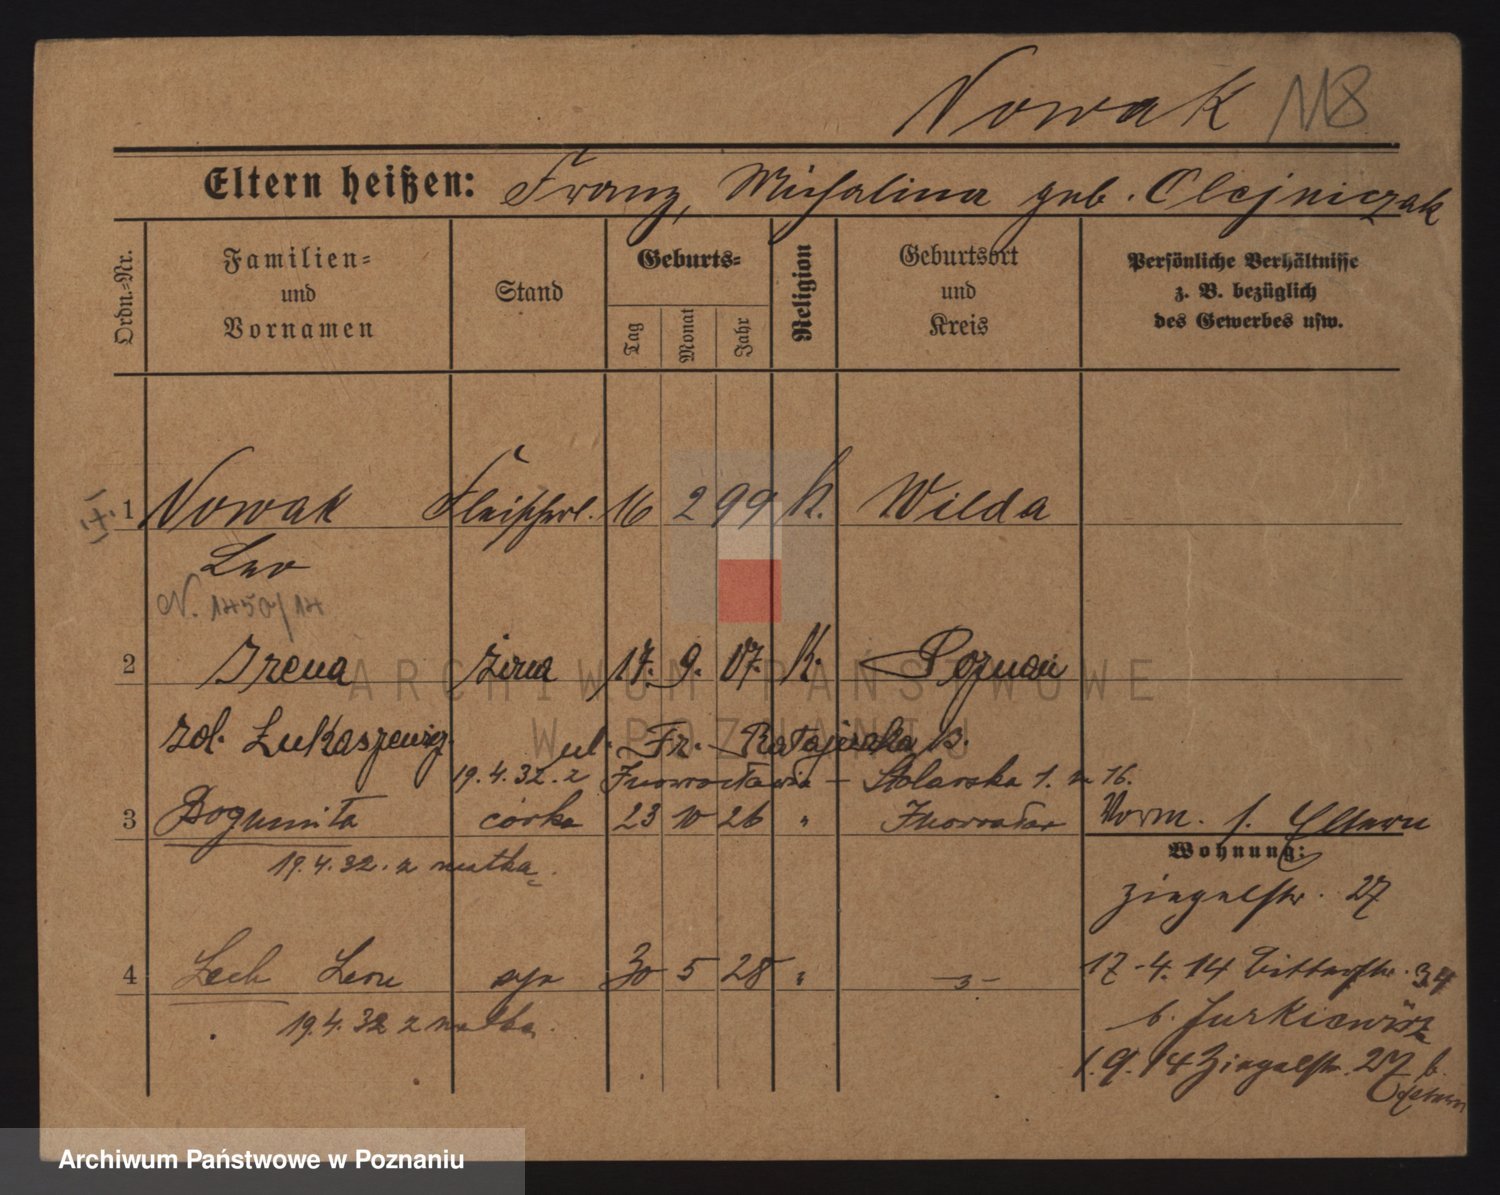 Nowak 118
Eltern heißen: Franz, Michalina geb. Olejniczak
Ordn.-Nr.
Familien-
und
Vornamen
Stand
Geburts-
Tag
Monat
Jahr
Religion
Geburtsort
und
Kreis
Persönliche Verhältnisse
z. B. bezüglich
des Gewerbes usw.
1 Nowak Fleischerl. 16 2 99 k. Wilda
Leo
N. 1450/14
2 Irena żona 17. 9. 07. k. Poznań
zd. Łukaszewicz ul. Fr. Ratajczaka
19.4.32. z Inowrocławia - Stolarska 1. m 16.
3 Bogumiła córka 23 10 26 " Inowrocław
19.4.32. z matką.
Vorm. s. Eltern
Wohnung:
Ziegelstr. 27
4 Lech Leon syn 30 5 28 " -"-
19.4.32 z matką.
17.4.14 Bitterstr. 34
b. Jurkiewicz
1.9.14 Ziegelstr. 27 b.
Eltern
ARCHIWUM PAŃSTWOWE
W POZNANIU
Archiwum Państwowe w Poznaniu